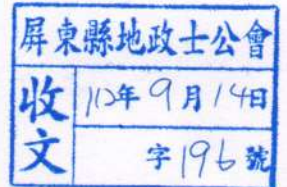 屏東縣地政士公會
收文
112年9月14日
字196號